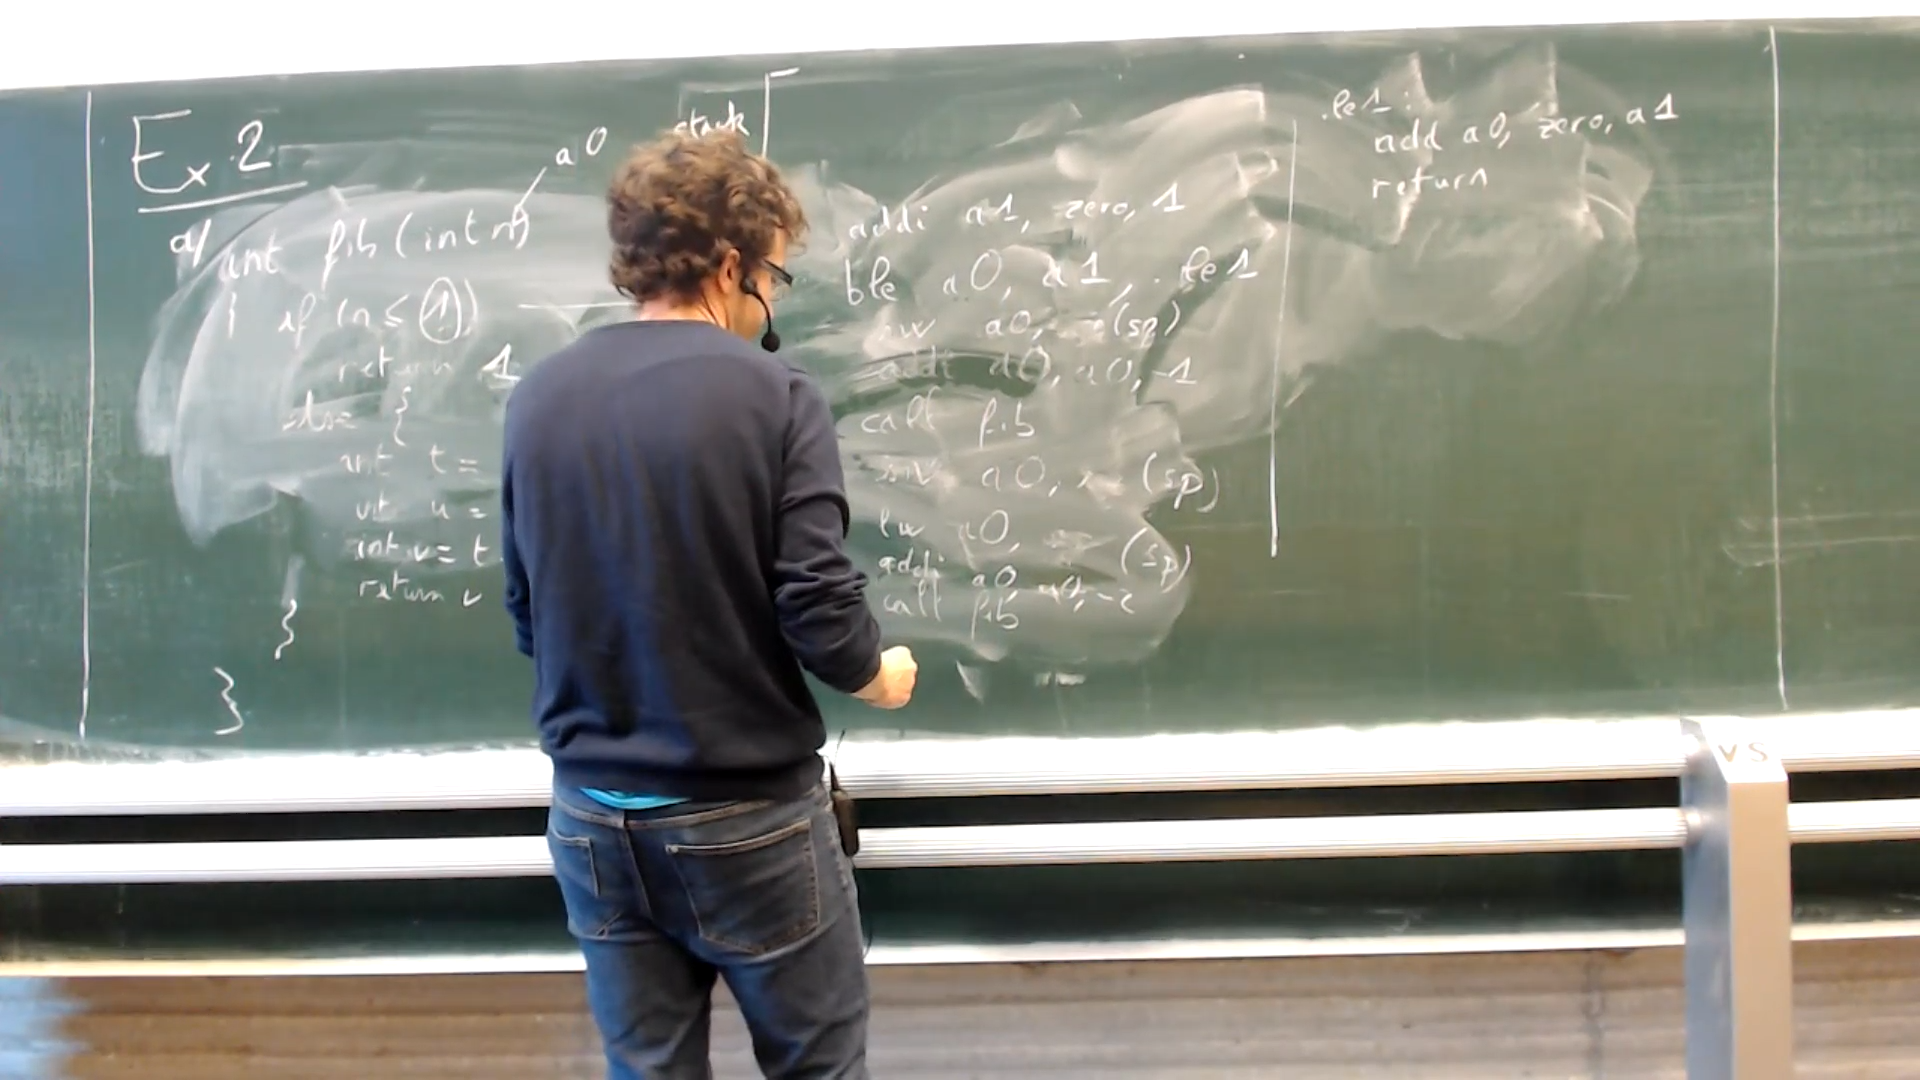 Ex 2
a0
stack
a/ int fib (int n)
{ if (n ≤ 1)
return 1
else {
int t =
int u =
int v = t
return v
}
}
addi a1, zero, 1
ble a0, a1, .le1
sw a0, (sp)
addi a0, a0, -1
call fib
sw a0, (sp)
lw a0, (sp)
addi a0, a0, -2
call fib
.le1 :
add a0, zero, a1
return
VS